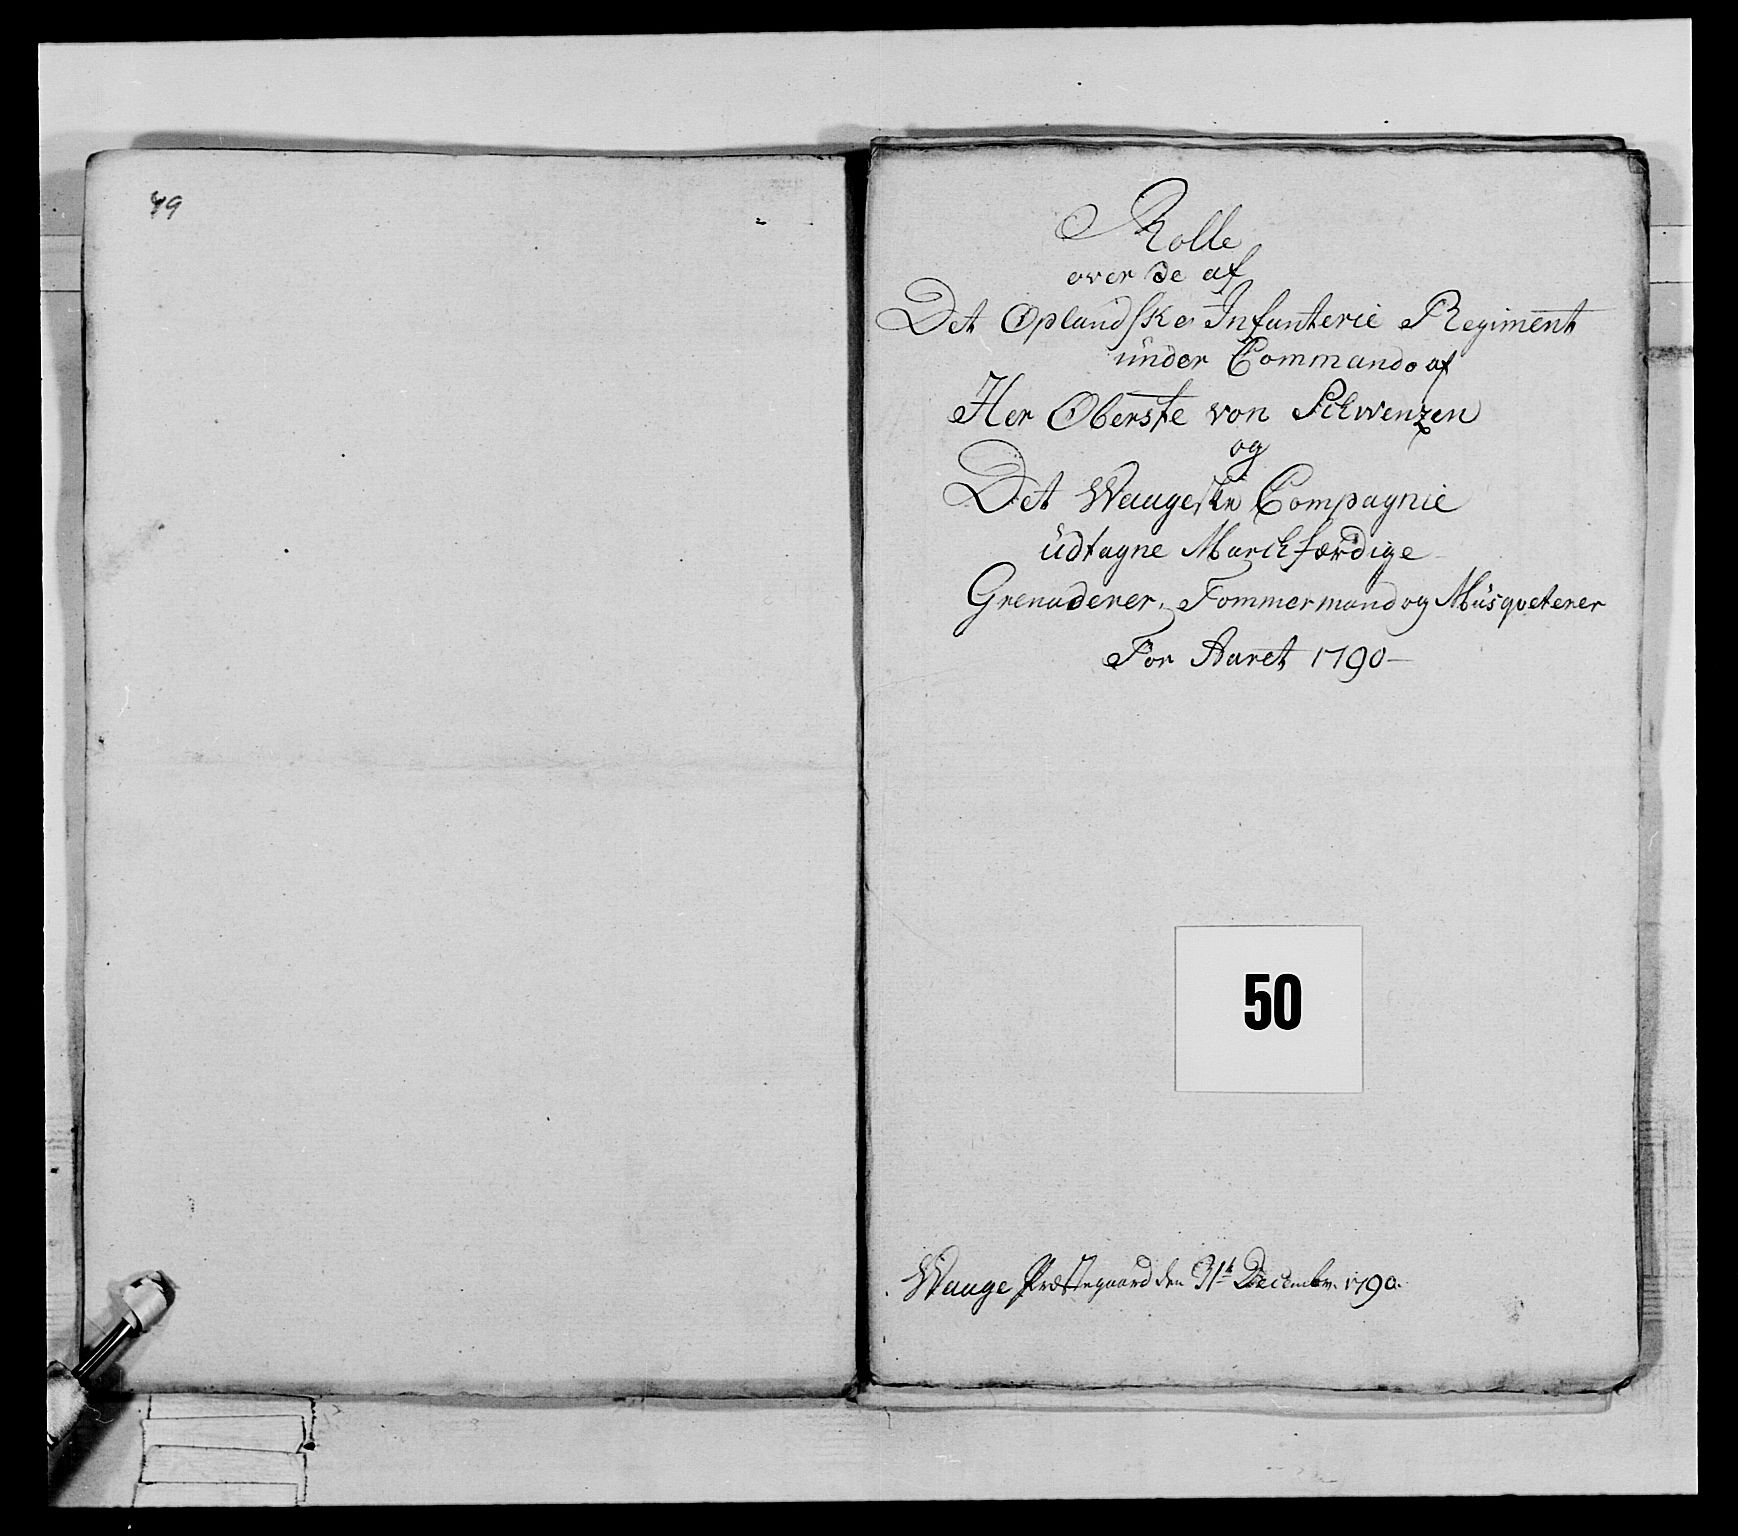 49
Rolle
over de af
Det Oplandske Infanterie Regiment
under Commando af
Her Oberste von Schwenzen
og
Det Waageske Compagnie
üdtagne Marchfærdige
Grenaderer, Tømmermænd og Müsqveterer
For Aaret 1790
50
Waage Præstegaard den 31t Decembr. 1790.